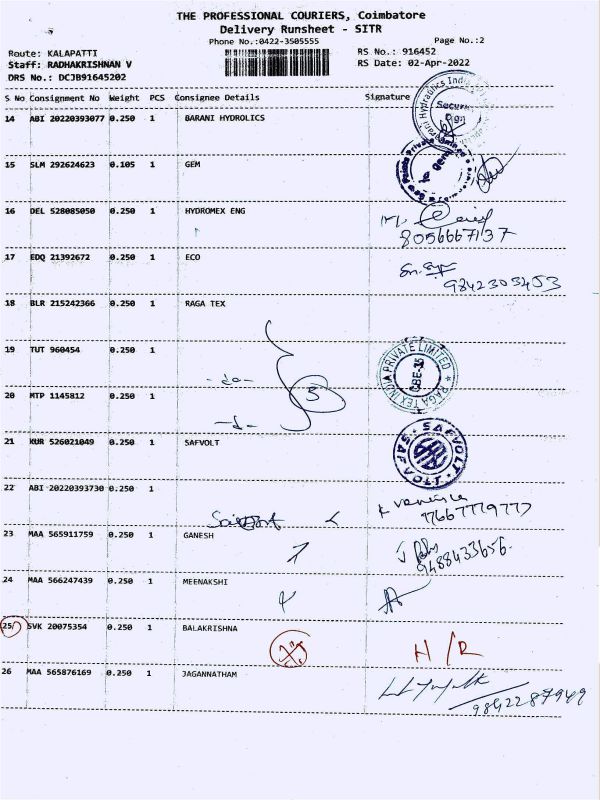 THE PROFESSIONAL COURIERS, Coimbatore
Delivery Runsheet - SITR
Phone No.:0422-3505555
Page No.:2
Route: KALAPATTI
RS No.: 916452
Staff: RADHAKRISHNAN V
RS Date: 02-Apr-2022
DRS No.: DCJB91645202
S No Consignment No Weight PCS Consignee Details Signature
14 ABI 20220393077 0.250 1 BARANI HYDROLICS
Security
15 SLM 292624623 0.105 1 GEM
16 DEL 528085050 0.250 1 HYDROMEX ENG
8056667137
17 EDQ 21392672 0.250 1 ECO
9842303453
18 BLR 215242366 0.250 1 RAGA TEX
19 TUT 960454 0.250 1
-do-
RAGA TEX INDIA PRIVATE LIMITED
CBE-35
20 MTP 1145812 0.250 1
3
-d-
21 KUR 526021049 0.250 1 SAFVOLT
SAFVOLT
22 ABI 20220393730 0.250 1
9766777977
23 MAA 565911759 0.250 1 GANESH
9488433656
24 MAA 566247439 0.250 1 MEENAKSHI
25 SVK 20075354 0.250 1 BALAKRISHNA
H/R
26 MAA 565876169 0.250 1 JAGANNATHAM
9842287949